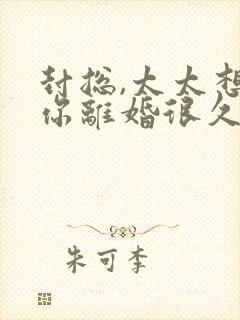 封總,太太想
你離婚很久
朱可李